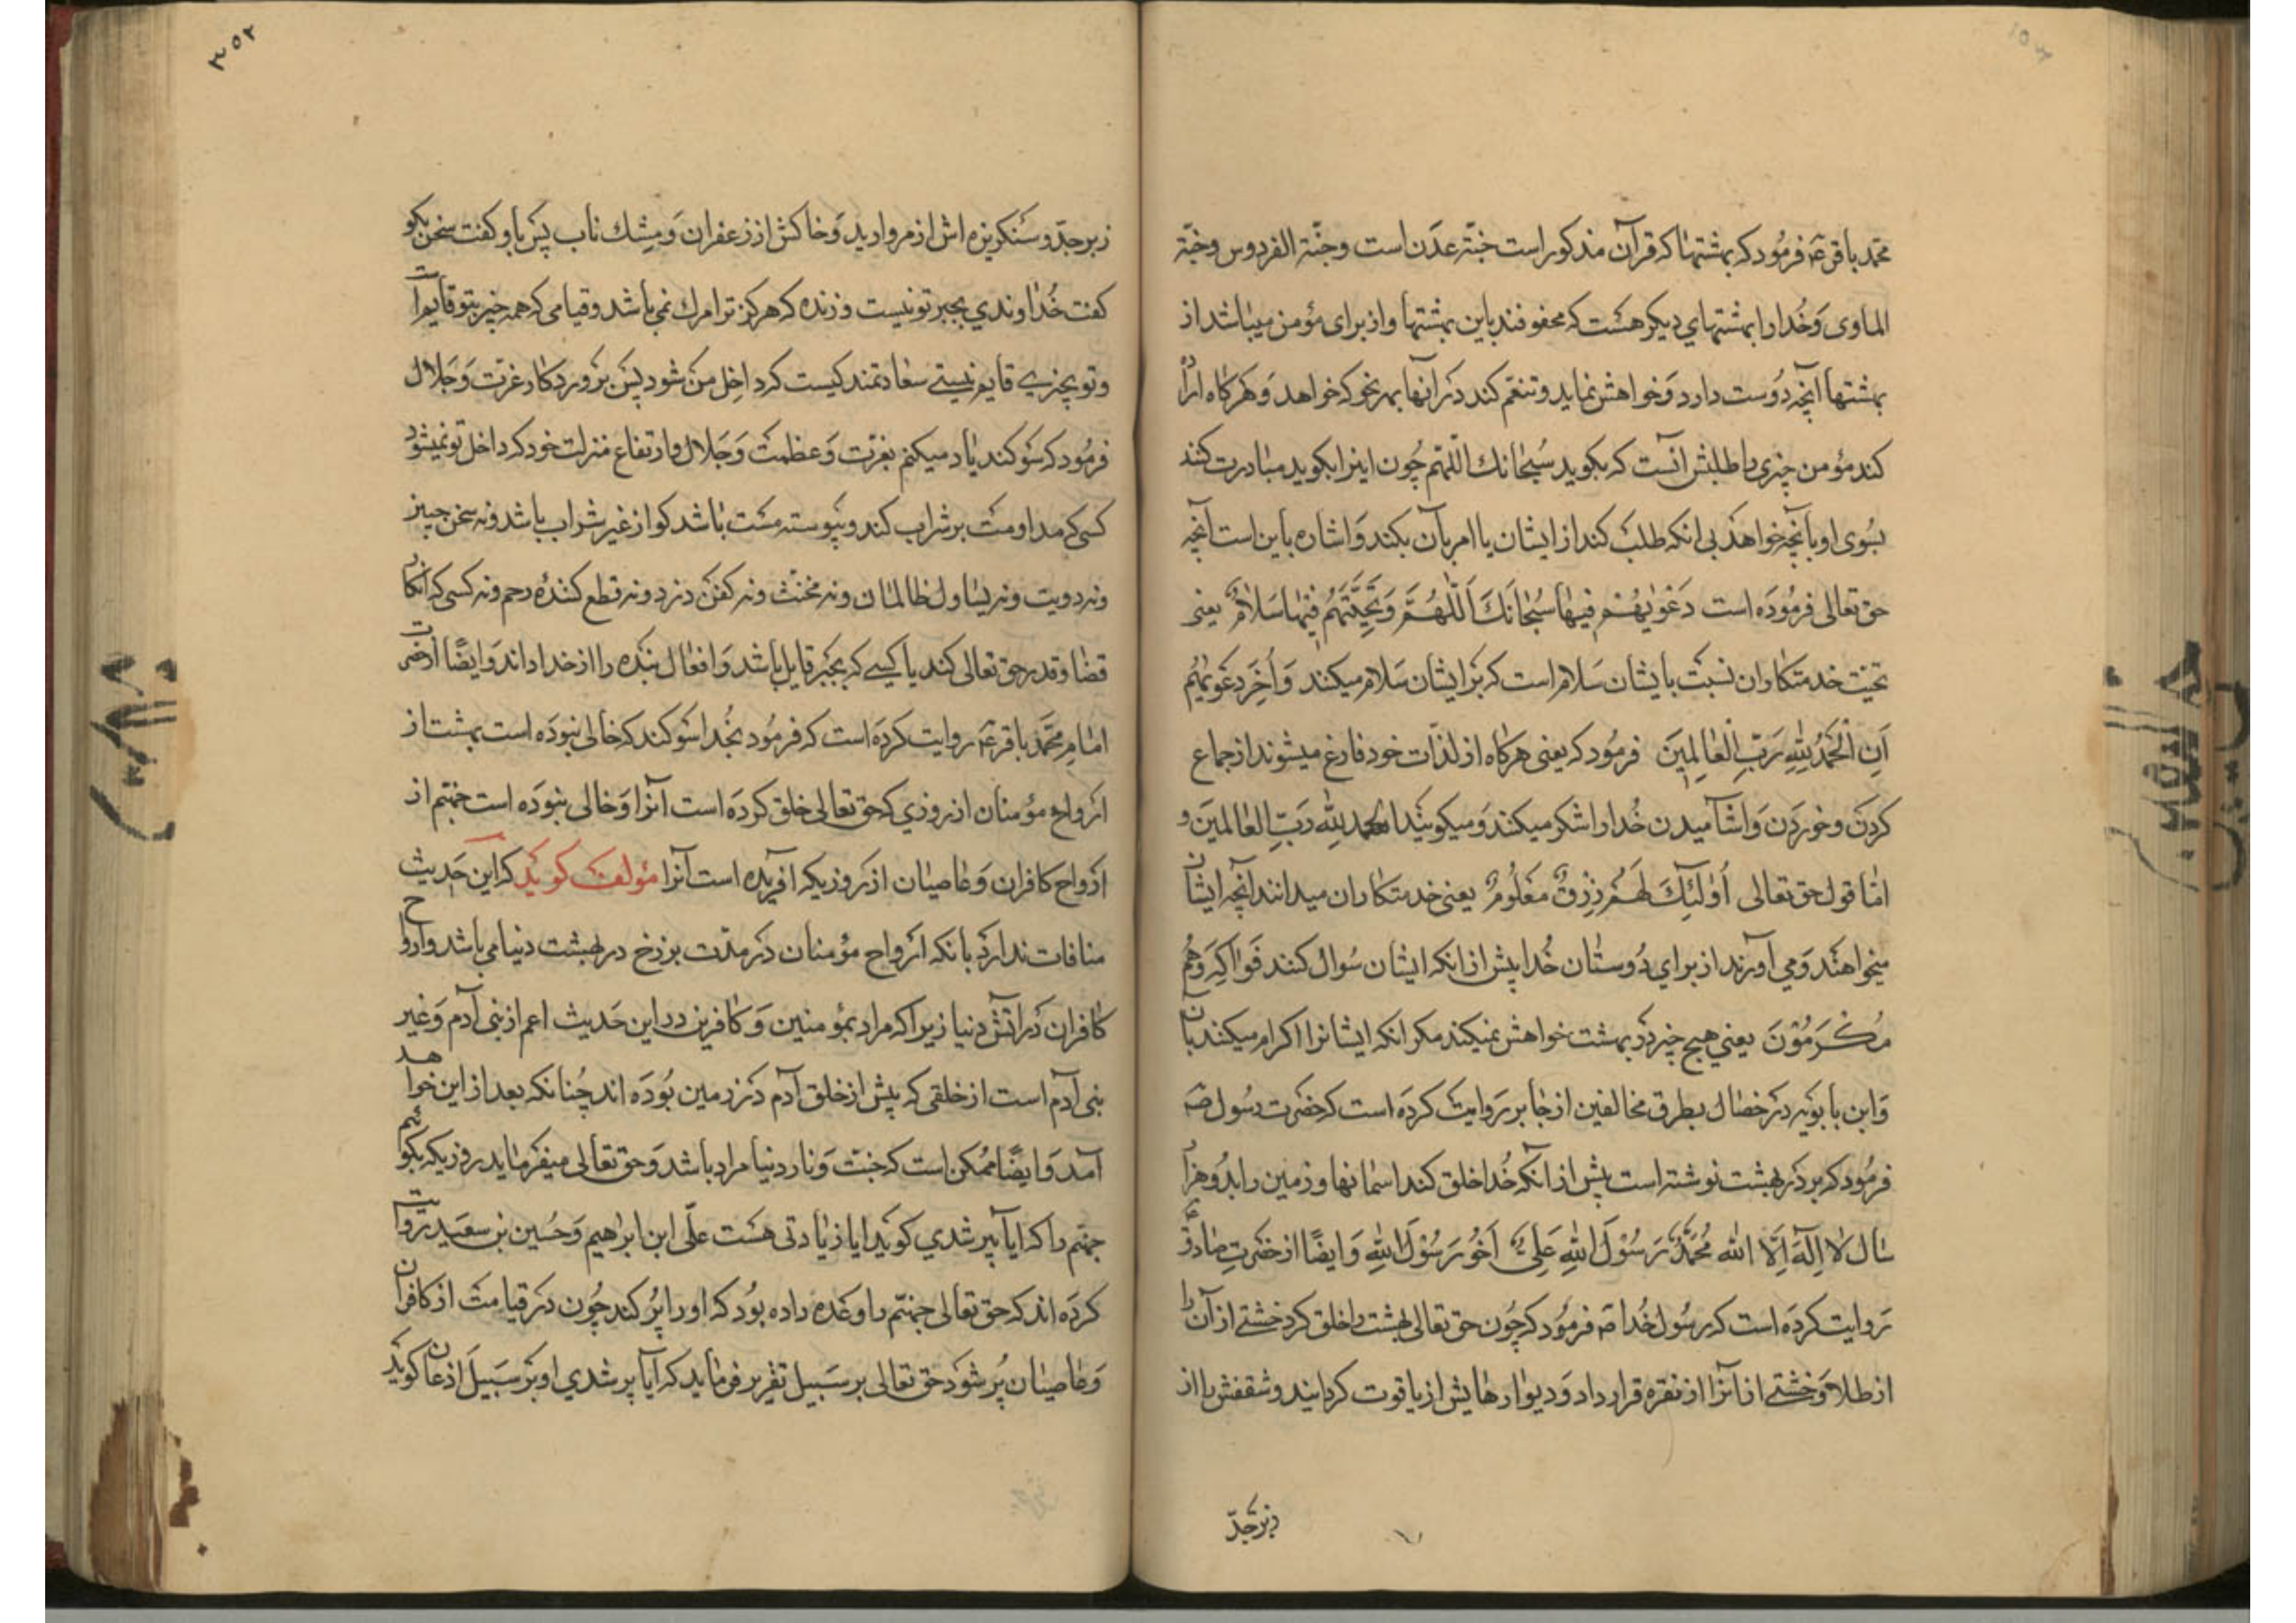 محمّد باقر ع فرمود که بهشتها که قرآن مذکور است جنّة عدن است و جنّة الفردوس و جنّة
الماوی و خدا را بهشتهای دیکر هست که محفوفند باین بهشتها و از برای مؤمن میباشد از
بهشتها آنچه دوست دارد و خواهش نماید و تنعّم کند در آنها بهر نحو که خواهد و هرکاه اراده
کند مؤمن چیزی را طلبش آنست که بکوید سُبحانك اللّهمّ چون اینرا بکوید مبادرت کنند
بسوی او بآنچه خواهد بی انکه طلب کند از ایشان یا امر بآن بکند و اشاره باین است آنچه
حق تعالی فرموده است دَعْوٰیهُمْ فیها سُبْحانَكَ اَللّٰهُمَّ وَتَحِیَّتُهُمْ فیها سَلامٌ یعنی
تحیّت خدمتکاران نسبت بایشان سلام است که بر ایشان سلام میکنند وَ اٰخِرُ دَعْوٰیهُم
اَنِ الْحَمْدُ لِلّٰهِ رَبِّ الْعٰالَمِینَ فرمود که یعنی هرکاه از لذّات خود فارغ میشوند از جماع
کردن و خوردن و اشامیدن خدا را شکر میکنند و میکویند الحمد للّه ربّ العالمین و
امّا قول حق تعالی أُولٰئِكَ لَهُمْ رِزْقٌ مَعْلُومٌ یعنی خدمتکاران میدانند آنچه ایشان
میخواهند و می آورند از برای دوستان خدا پیش از انکه ایشان سؤال کنند فَواکِهُ وَهُم
مُکْرَمُوْنَ یعنی هیچ چیز در بهشت خواهش نمیکنند مکر انکه ایشانرا اکرام میکنند بآن
و ابن بابویه در خصال بطرق مخالفین از جابر روایت کرده است که حضرت رسول ص
فرمود که بر در بهشت نوشته است پیش از آنکه خدا خلق کند اسمانها و زمین را بدو هزار
سال لا اِلٰهَ اِلَّا اللّه مُحَمَّدٌ رَسُوْلُ اللّهِ عَلِیٌّ اَخُو رَسُوْلِ اللّهِ و ایضًا از حضرت صادق ع
روایت کرده است که رسول خدا ص فرمود که چون حق تعالی بهشت را خلق کرد خشتی از آن را
از طلا و خشتی از آنرا از نقره قرار داد و دیوارهایش از یاقوت کردانید و سقفش را از
زبرجدّ
۳۵۲
زبرجدّ و سنکریزه اش از مروارید و خاکش از زعفران و مشك ناب پس باو کفت سخن بکو
کفت خداوندی بجز تو نیست و زنده که هرکز ترا مرك نمی باشد و قیامی که همه چیز بتو قایم است
و تو بچیزی قایم نیستی سعادتمند کیست که داخل من شود پس پروردکار عزت و جلال
فرمود که سوکند یاد میکنم بعزّت و عظمت و جلال و ارتفاع منزلت خود که داخل تو نمیشود
کسی که مداومت بر شراب کند و پیوسته مست باشد کو از غیر شراب باشد و نه سخن چین
و نه دیوث و نه یساول ظالمان و نه مخنّث و نه کفن دزد و نه قطع کننده رحم و نه کسی که انکار
قضا و قدر حق تعالی کند یا کسی که بجبر قایل باشد و افعال بنده را از خدا داند و ایضًا از حضرت
امام محمّد باقر ع روایت کرده است که فرمود بخدا سوکند که خالی نبوده است بهشت از
ارواح مؤمنان از روزی که حق تعالی خلق کرده است آنرا و خالی نبوده است جهنّم از
ارواح کافران و عاصیان از روزیکه افریده است آنرا مؤلف کوید که این حدیث
منافات ندارد بانکه ارواح مؤمنان در مدّت برزخ در بهشت دنیا می باشد و ارواح
کافران در آتش دنیا زیرا که مراد بمؤمنین و کافرین در این حدیث اعم از بنی آدم و غیر
بنی آدم است از خلقی که پیش از خلق آدم در زمین بوده اند چنانکه بعد از این خواهد
آمد و ایضًا ممکن است که جنّت و نار دنیا مراد باشد و حق تعالی میفرماید روزیکه بکوئیم
جهنّم را که ایا پر شدی کوید ایا زیادتی هست علّی ابن ابراهیم و حسین بن سعید روایت
کرده اند که حق تعالی جهنّم را وعده داده بود که او را پر کند چون در قیامت از کافران
و عاصیان پر شود حق تعالی بر سبیل تقریر فرماید که آیا پر شدی او بر سبیل اذعان کوید